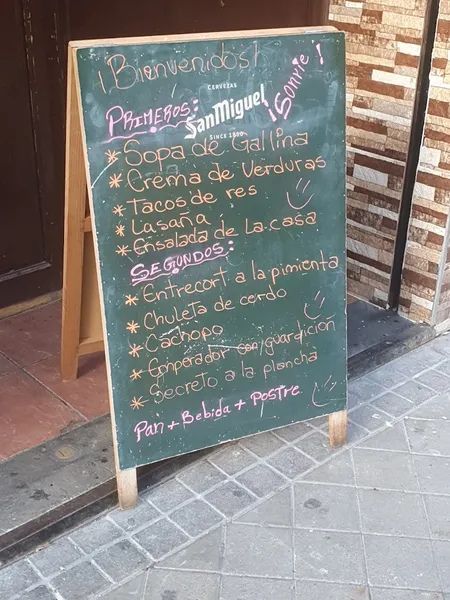 ¡Bienvenidos!
¡Sonríe!
CERVEZAS
San Miguel
SINCE 1890
PRIMEROS:
* Sopa de Gallina
* Crema de Verduras
* Tacos de res
* Lasaña
* Ensalada de La casa
SEGUNDOS:
* Entrecort a la pimienta
* Chuleta de cerdo
* Cachopo
* Emperador con guardición
* Secreto a la plancha
Pan + Bebida + Postre